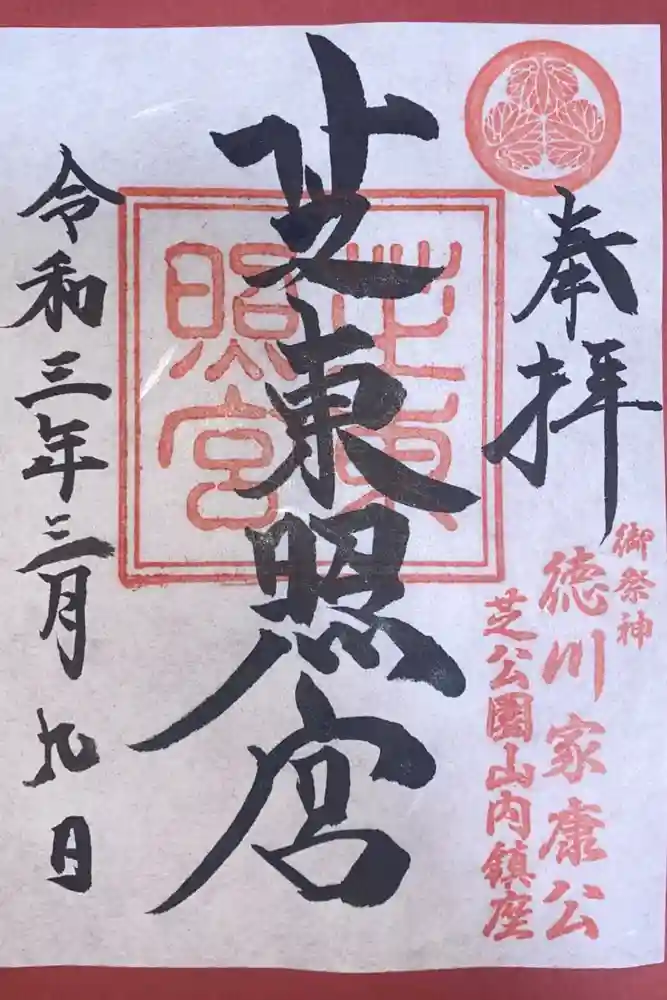 奉拝
御祭神
徳川家康公
芝公園山内鎮座
芝東照宮
芝東
照宮
令和三年三月九日